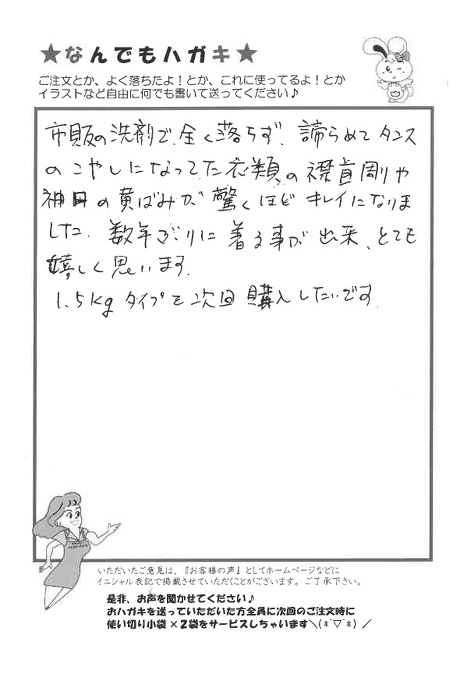 ★なんでもハガキ★
ご注文とか、よく落ちたよ！とか、これに使ってるよ！とか
イラストなど自由に何でも書いて送ってください♪
市販の洗剤で全く落ちず、諦らめてタンス
のこやしになってた衣類の襟や
の黄ばみが驚くほどキレイになりま
した。数年ぶりに着る事が出来、とても
嬉しく思います。
1.5kgタイプを次回購入したいです。
いただいたご意見は、『お客様の声』としてホームページなどに
イニシャル表記で掲載させていただくことがございます。ご了承下さい。
是非、お声を聞かせてください♪
おハガキを送っていただいた方全員に次回のご注文時に
使い切り小袋×2袋をサービスしちゃいます＼(*^▽^*)／